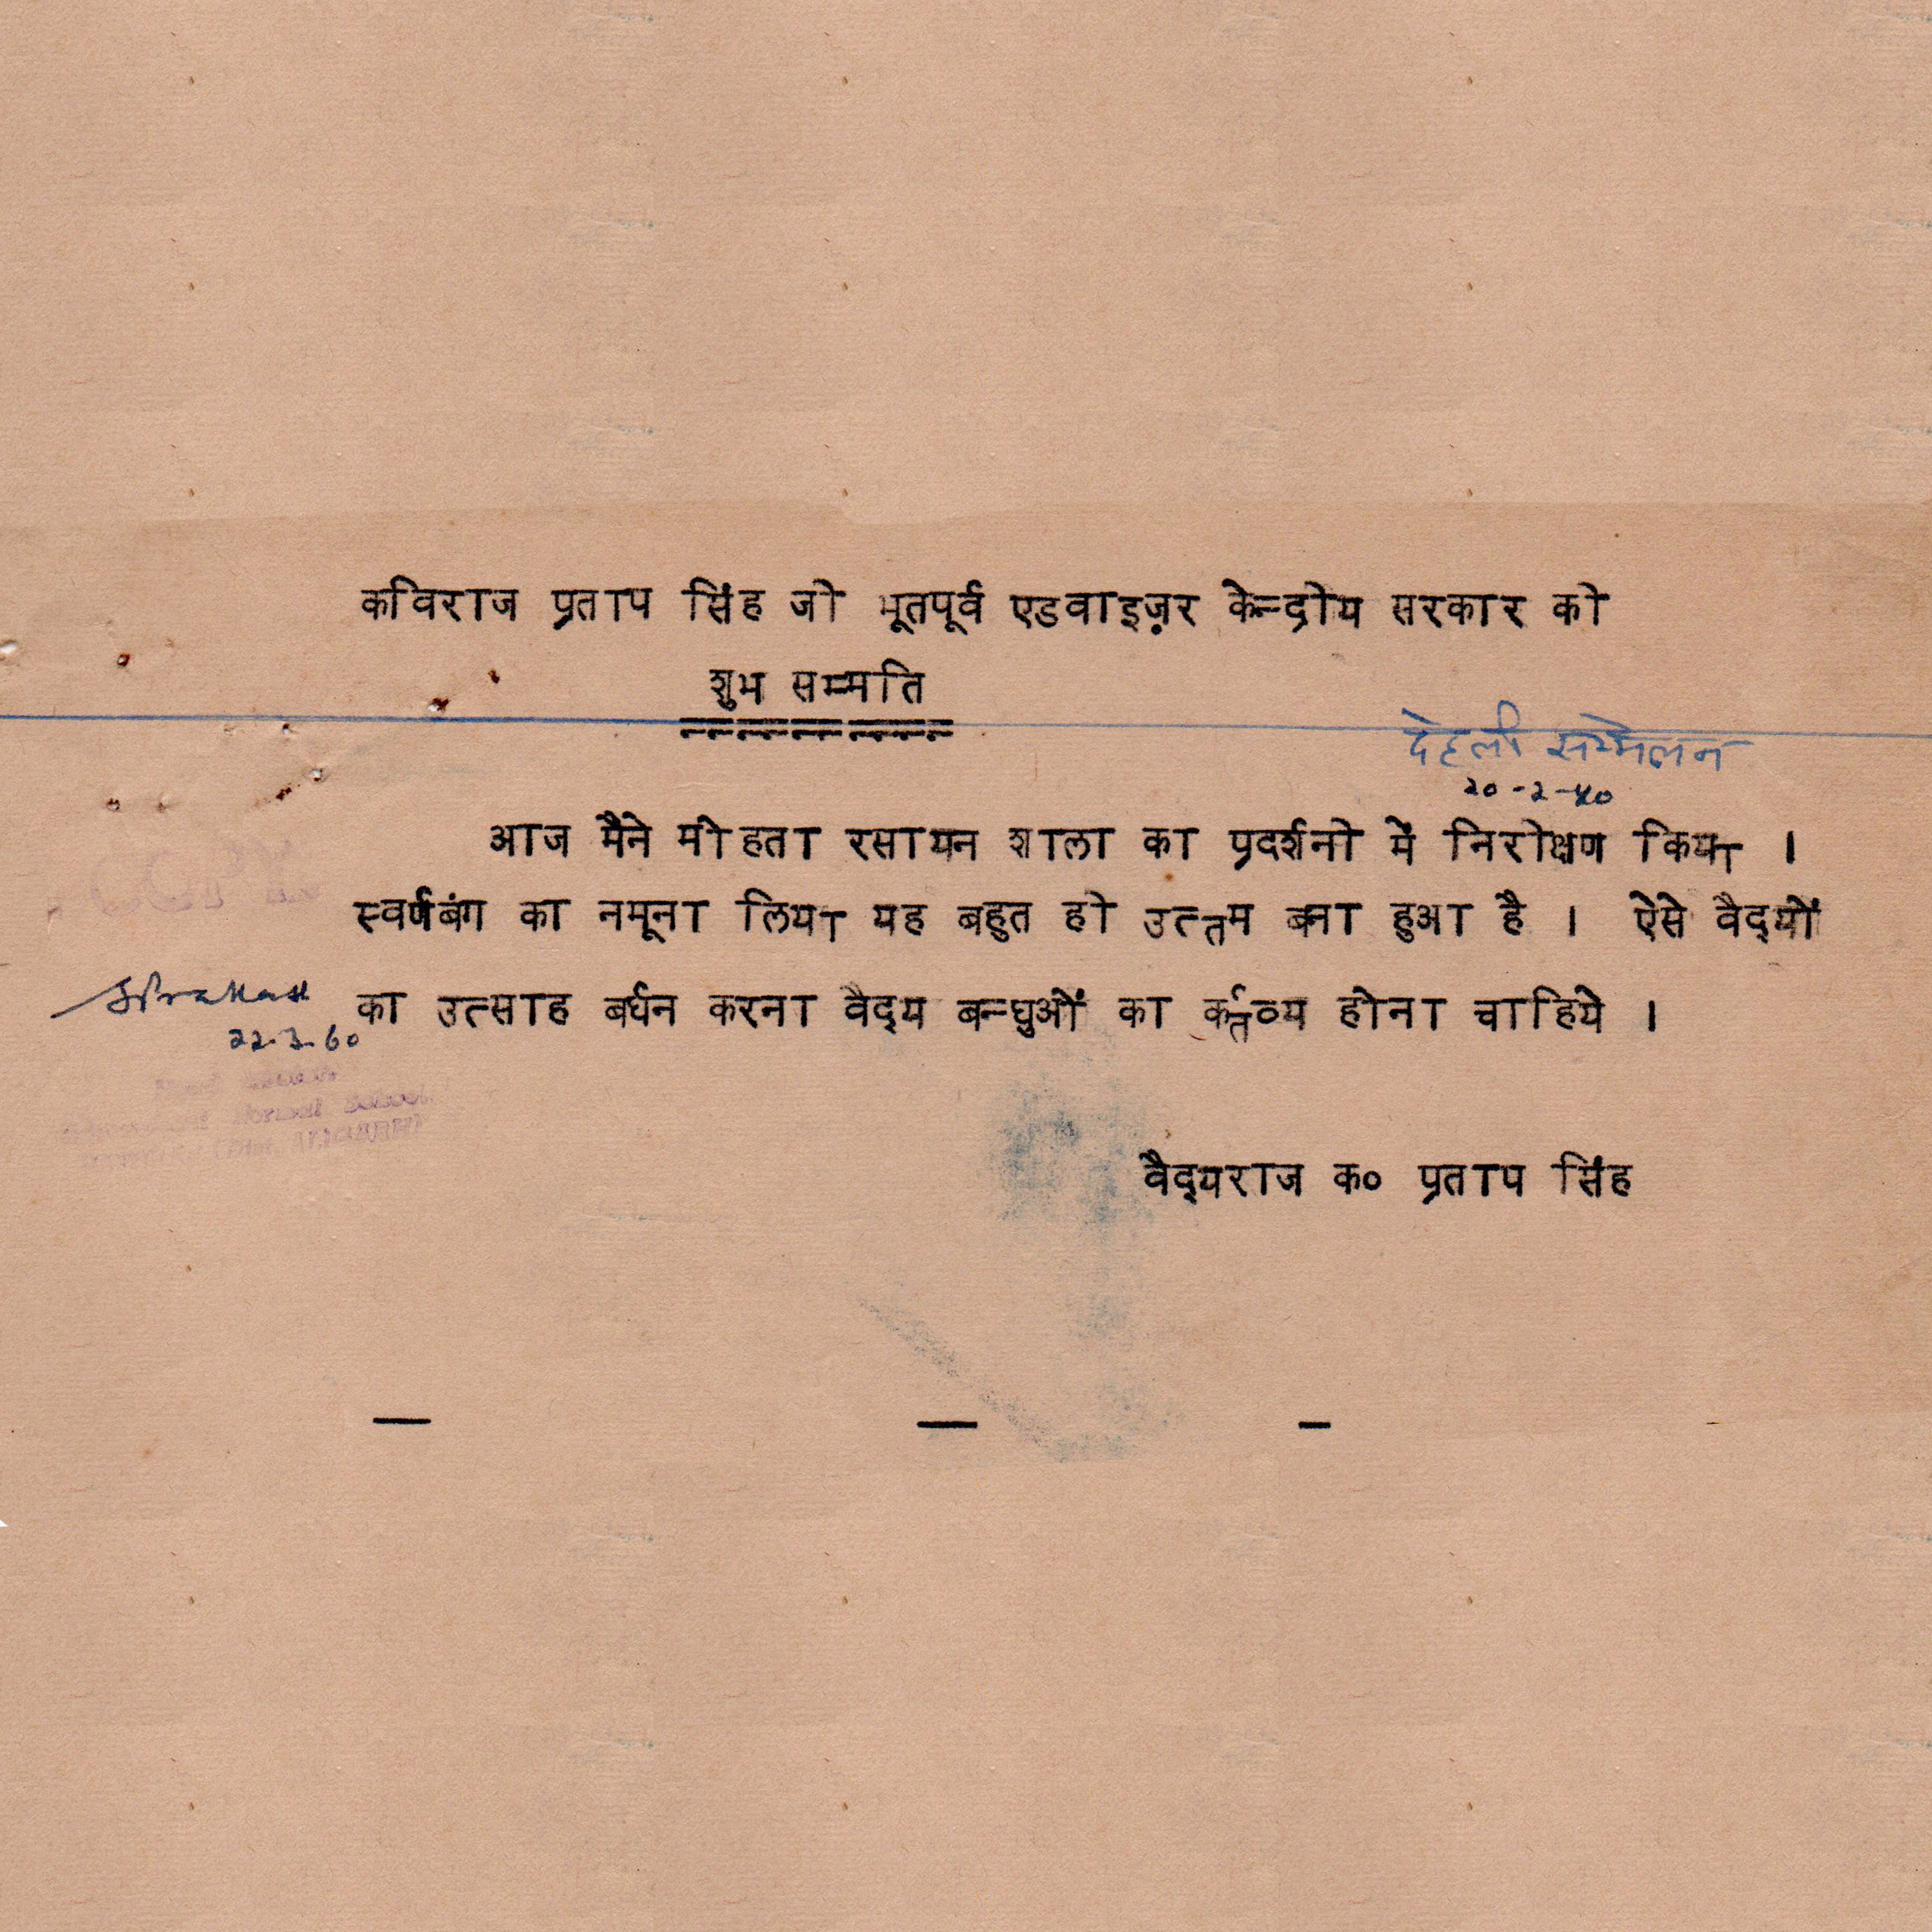 कविराज प्रताप सिंह जी भूतपूर्व एडवाइज़र केन्द्रीय सरकार की
शुभ सम्मति
देहली सम्मेलन
आज मैने मीहता रसायन शाला का प्रदर्शनी में निरीक्षण किया ।
स्वर्णबंग का नमूना लिया यह बहुत ही उत्तम बना हुआ है । ऐसे वैद्यों
का उत्साह बर्धन करना वैद्य बन्धुओं का कर्तव्य होना चाहिये ।
22.3.60
वैद्यराज क० प्रताप सिंह